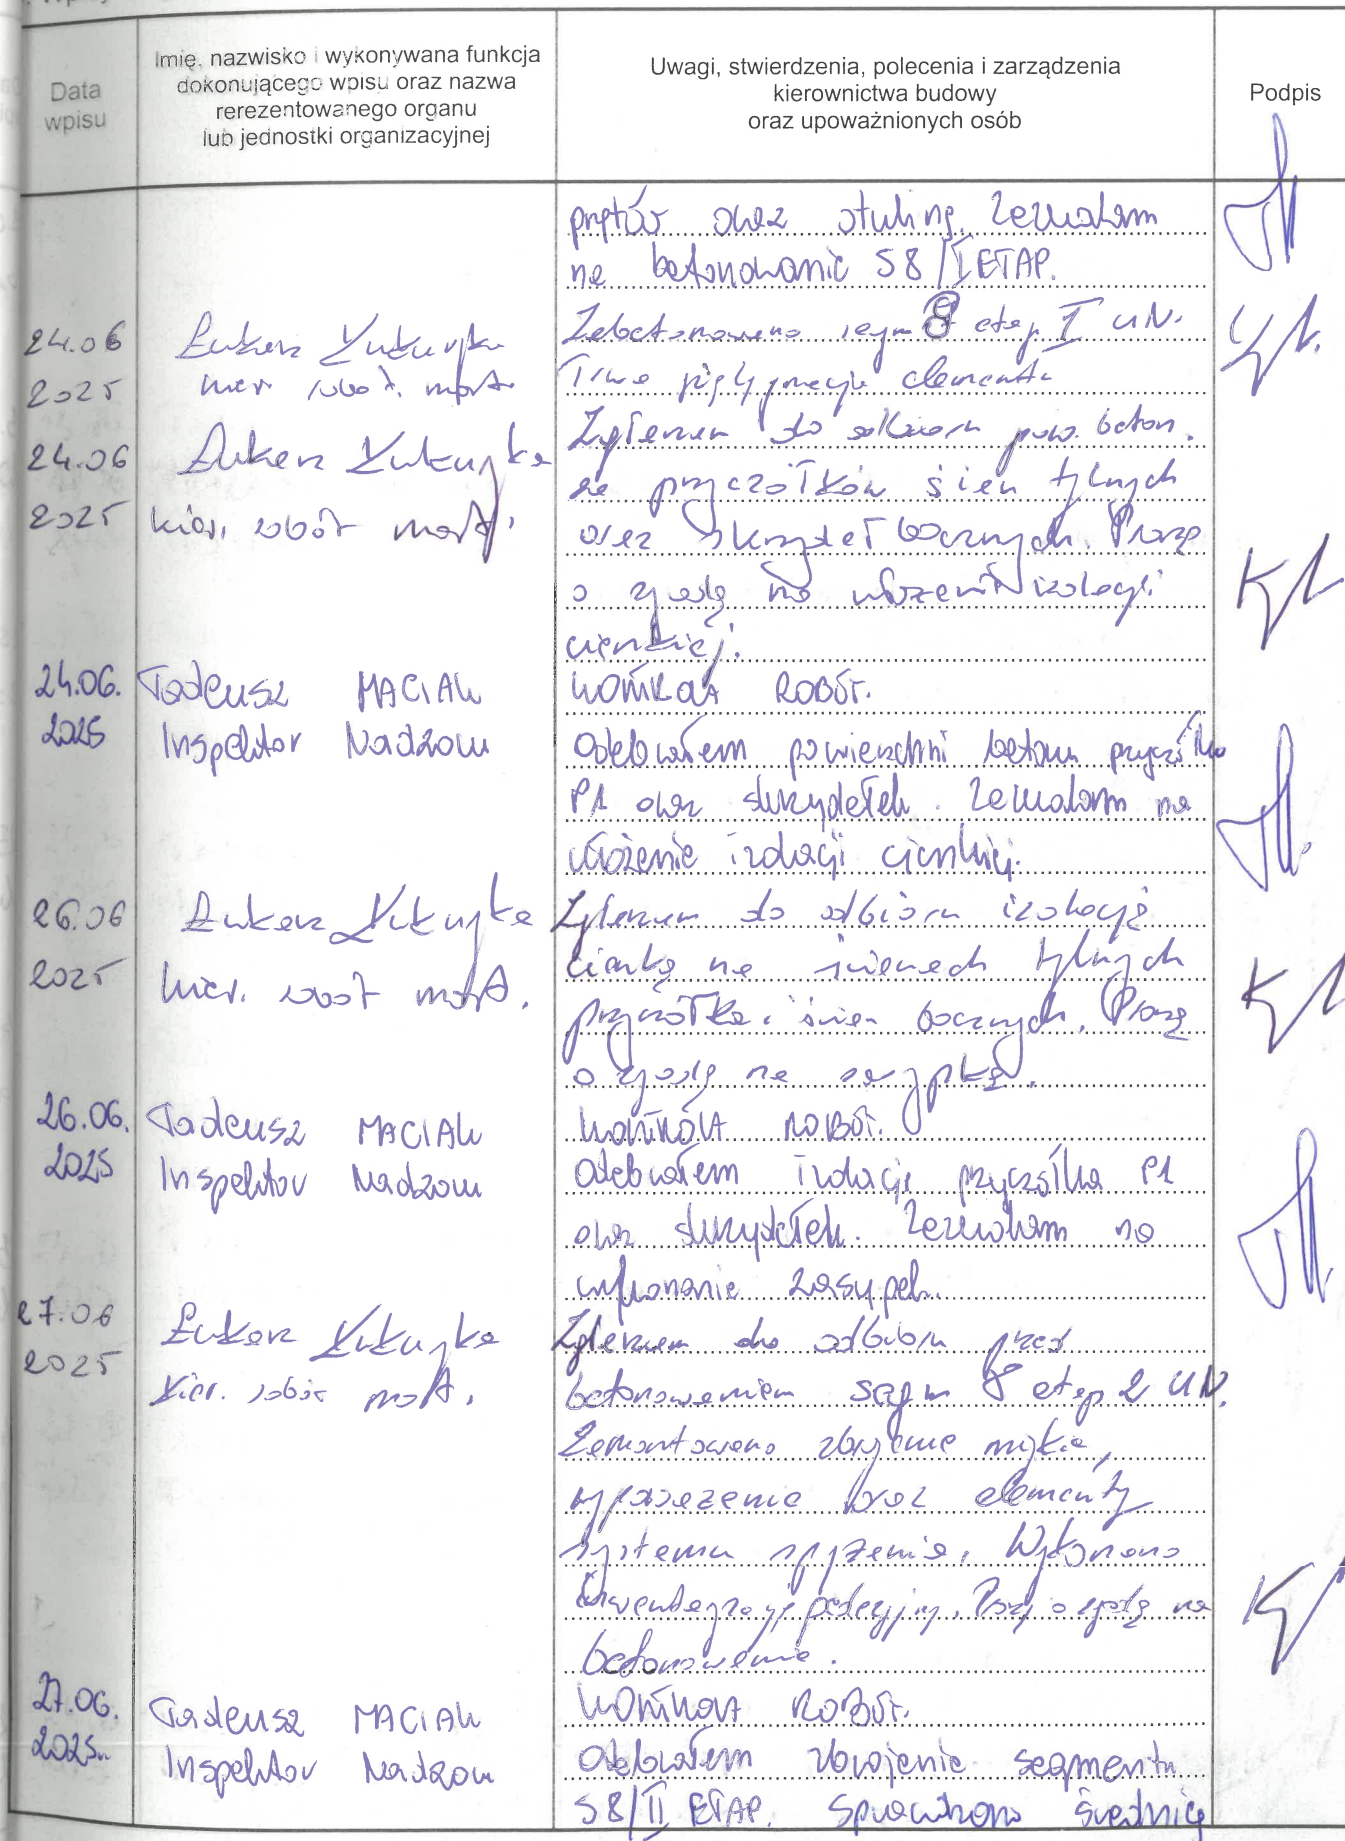 Data
wpisu
Imię, nazwisko i wykonywana funkcja
dokonującego wpisu oraz nazwa
rerezentowanego organu
lub jednostki organizacyjnej
Uwagi, stwierdzenia, polecenia i zarządzenia
kierownictwa budowy
oraz upoważnionych osób
Podpis
prętów oraz otulinę. Zezwalam
na betonowanie S8/I ETAP.
24.06
2025
Łukasz
kier. robót. most.
Zabetonowano segm 8 etap I UN.
Trwa pielęgnacja elementu
24.06
2025
Łukasz
kier. robót most.
Zgłaszam do odbioru pow. beton.
na przyczółków ścian tylnych
oraz skrzydeł bocznych. Proszę
o zgodę na ułożenie izolacji
cienkiej.
24.06.
2025
Tadeusz MACIAK
Inspektor Nadzoru
KONTROLA ROBÓT.
Odebrałem powierzchni betonu przyczółka
P1 oraz skrzydełek. Zezwalam na
ułożenie izolacji cienkiej.
26.06
2025
Łukasz
kier. robót most.
Zgłaszam do odbioru izolację
cienką na ścianach tylnych
przyczółka i ścian bocznych. Proszę
o zgodę na zasypkę.
26.06.
2025
Tadeusz MACIAK
Inspektor Nadzoru
KONTROLA ROBÓT.
Odebrałem izolację przyczółka P1
oraz skrzydełek. Zezwalam na
wykonanie zasypek.
27.06
2025
Łukasz
kier. robót most.
Zgłaszam do odbioru przed
betonowaniem segm 8 etap 2 UN.
Zamontowano zbrojenie miękkie,
wyposażenie oraz elementy
systemu sprężenia. Wykonano
inwentaryzację geodezyjną. Proszę o zgodę na
betonowanie.
27.06.
2025r.
Tadeusz MACIAK
Inspektor Nadzoru
KONTROLA ROBÓT.
Odebrałem zbrojenie segmentu
S8/II ETAP. Sprawdzono średnicę